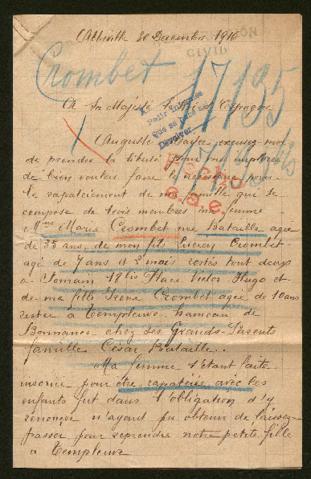 Albertville 20 Decembre 1916
Crombet 17135
A Sa Majesté le Roi d'Espagne
Auguste Sagesse excusez moi
de prendre la liberté pour vous implorer
de bien vouloir faire le nécessaire pour
le rapatriement de ma famille que se
compose de trois membres ma femme
Mme Maria Crombet née Bataille agée
de 35 ans, de mon fils Lucien Crombet
agé de 7 ans et 2 mois restés tout deux
a Somain 18 bis Place Victor Hugo et
de ma fille Irène Crombet agée de 10 ans
restée a Templeuve hameau de
Bonnance chez ses Grands-Parents
famille César Bataille.
Ma femme s'étant faite
inscrire pour être rapatriée avec ses
enfants fut dans l'obligation d'y
renoncer n'ayant pu obtenir de laissez-
passer pour reprendre notre petite fille
a Templeuve